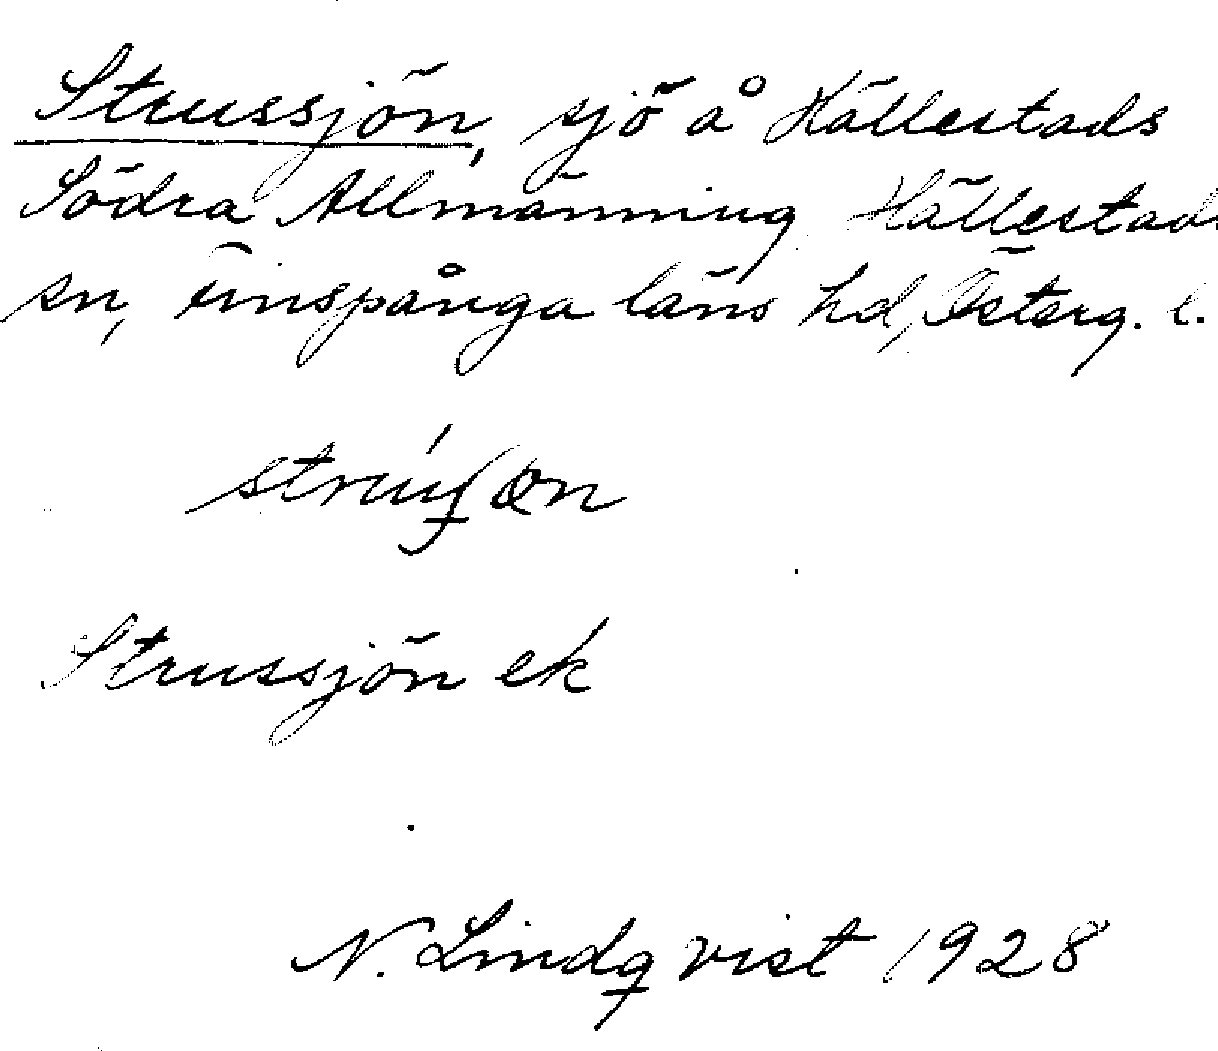 Strussjön, sjö å Hällestads
Södra Allmänning Hällestads
sn, Finspånga läns hd, Österg. l.
Strussjön ek
N. Lindqvist 1928